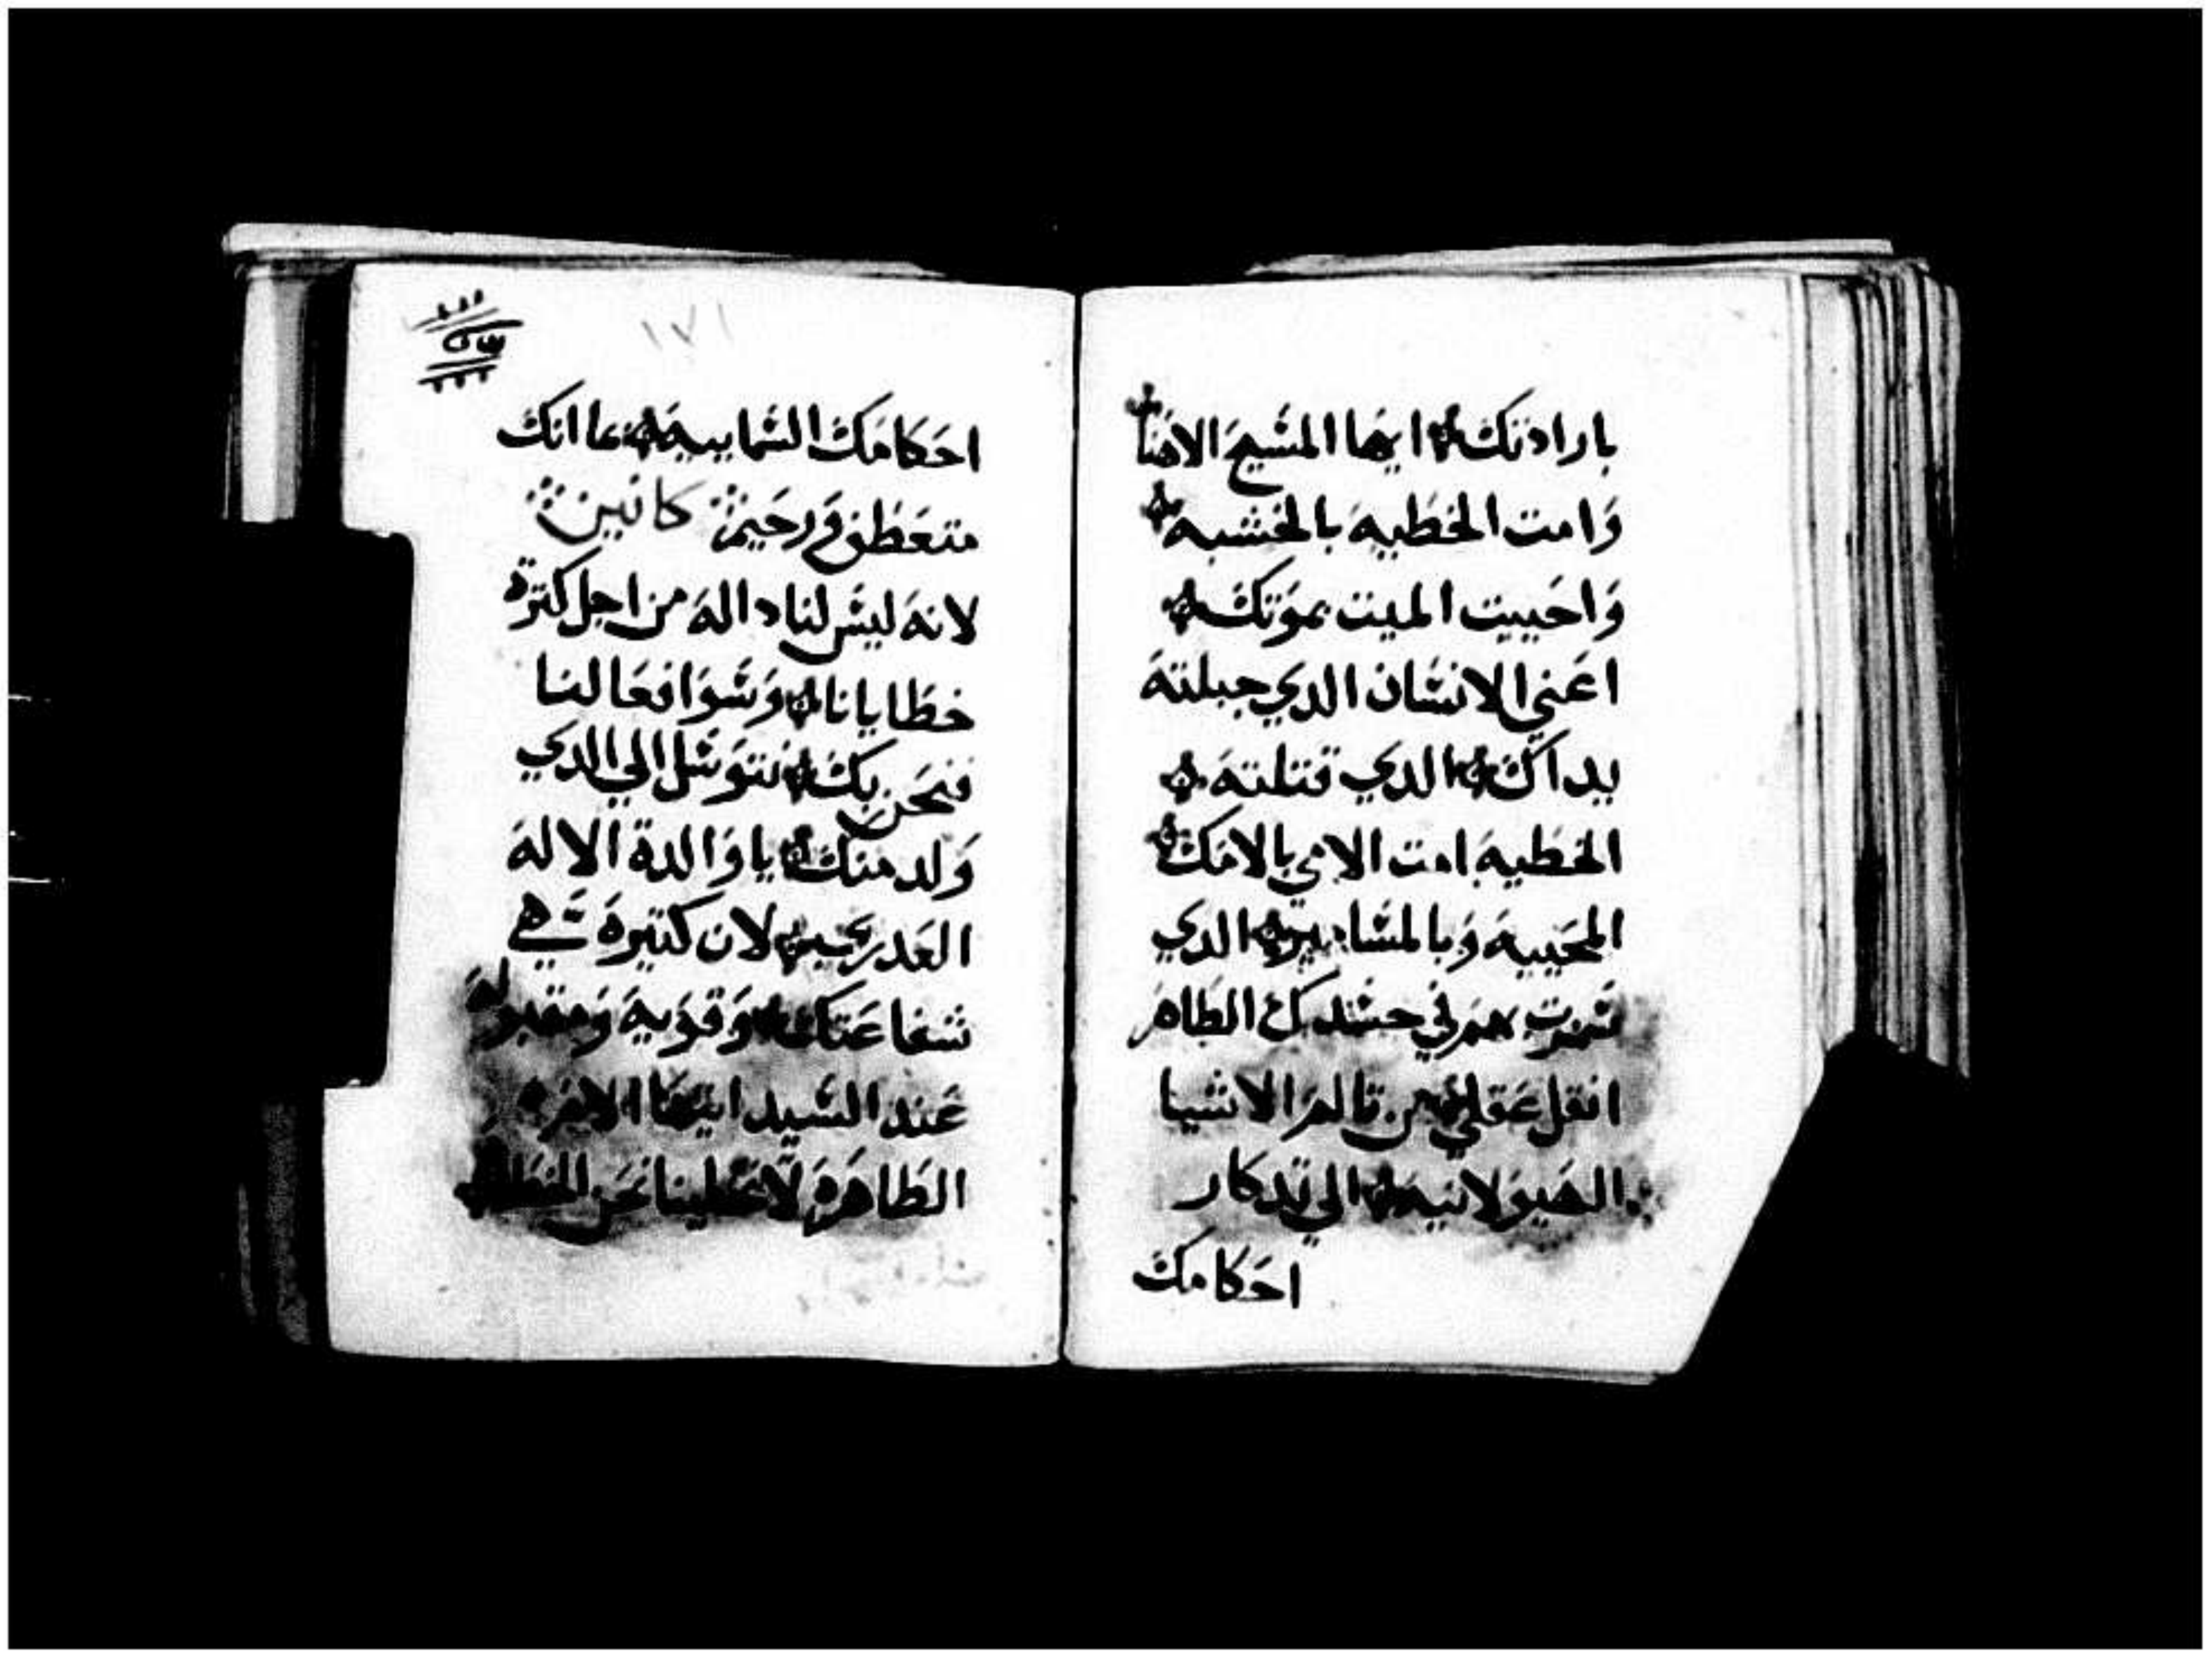 بارادتك ايها المسيح الاهنا
وامت الخطيه بالخشبه
واحييت الميت بموتك
اعني الانسان الدي جبلته
يداك الدي قتلته
الخطيه امت الامي بالامك
المحييه وبالمسامير الدي
سمرت بهم في جسدك الطاهر
انقل عقلي من تالم الاشيا
الهيولانيه الي تدكار
احكامك
١٧١
احكامك السماييه بما انك
متعطف ورحيم كانين
لانه ليس لنا داله من اجل كترة
خطايانا وسوافعالنا
فنحن بك نتوسل الي الدي
ولد منك يا والدة الاله
العدري لان كتيرة هي
شفاعتك وقويه ومقبوله
عند السيد ايتها الام
الطاهره لا نحن الخطاه